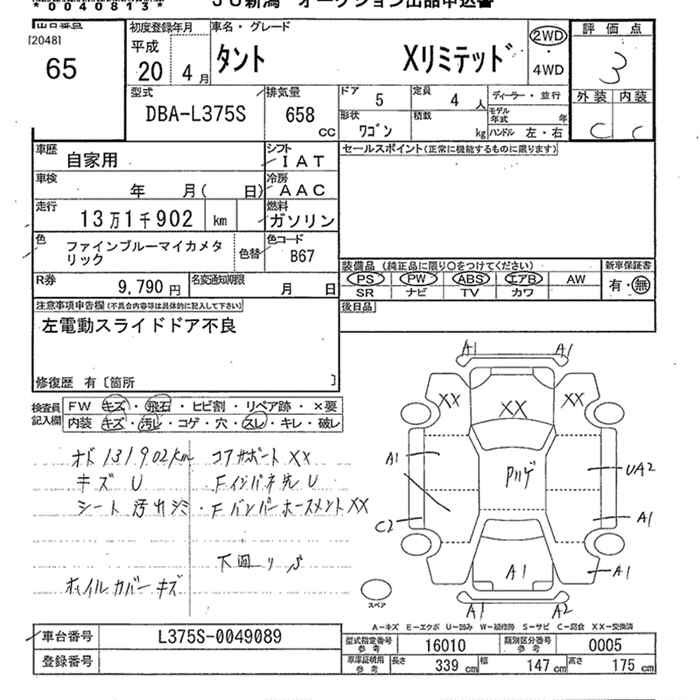 *0040813*
JU新潟 オークション出品申込書
出品番号
[2048]
65
初度登録年月
平成
20 4月
車名・グレード
タント Xリミテッド
2WD
・
4WD
評価点
3
外装 内装
C C
型式
DBA-L375S
排気量
658
CC
ドア 5
定員 4人
ディーラー・並行
形状 ワゴン
積載 kg
モデル年式 年
ハンドル 左・右
車歴 自家用
シフト IAT
セールスポイント(正常に機能するものに限ります)
車検 年 月( 日)
冷房 AAC
走行 13万1千902 km
燃料 ガソリン
色 ファインブルーマイカメタリック
色替
色コード B67
装備品 (純正品に限り○をつけてください)
新車保証書
PS PW ABS エアB AW
有・無
SR ナビ TV カワ
R券 9,790円
名変通知期限 月 日
後日品
注意事項申告欄(不具合内容等は具体的に記入して下さい)
左電動スライドドア不良
修復歴 有〔箇所 〕
検査員記入欄
FW キズ・飛石・ヒビ割・リペア跡・×要
内装 キズ・汚レ・コゲ・穴・スレ・キレ・破レ
オド131902km コアサポートXX
キズU ・FインパネU
シート汚れシミ ・Fバンパーホースメント XX
下回り
オイルカバーキズ
A1 A1
XX XX XX
A1
UA2
C2
A1
A1
A1
A1 A2
スペア
A-キズ E-エクボ U-凹み W-補修跡 S-サビ C-腐食 XX-交換済
車台番号 L375S-0049089
登録番号
型式指定番号 参考 16010
類別区分番号 参考 0005
車庫証明用 参考 長さ 339cm 幅 147cm 高さ 175cm